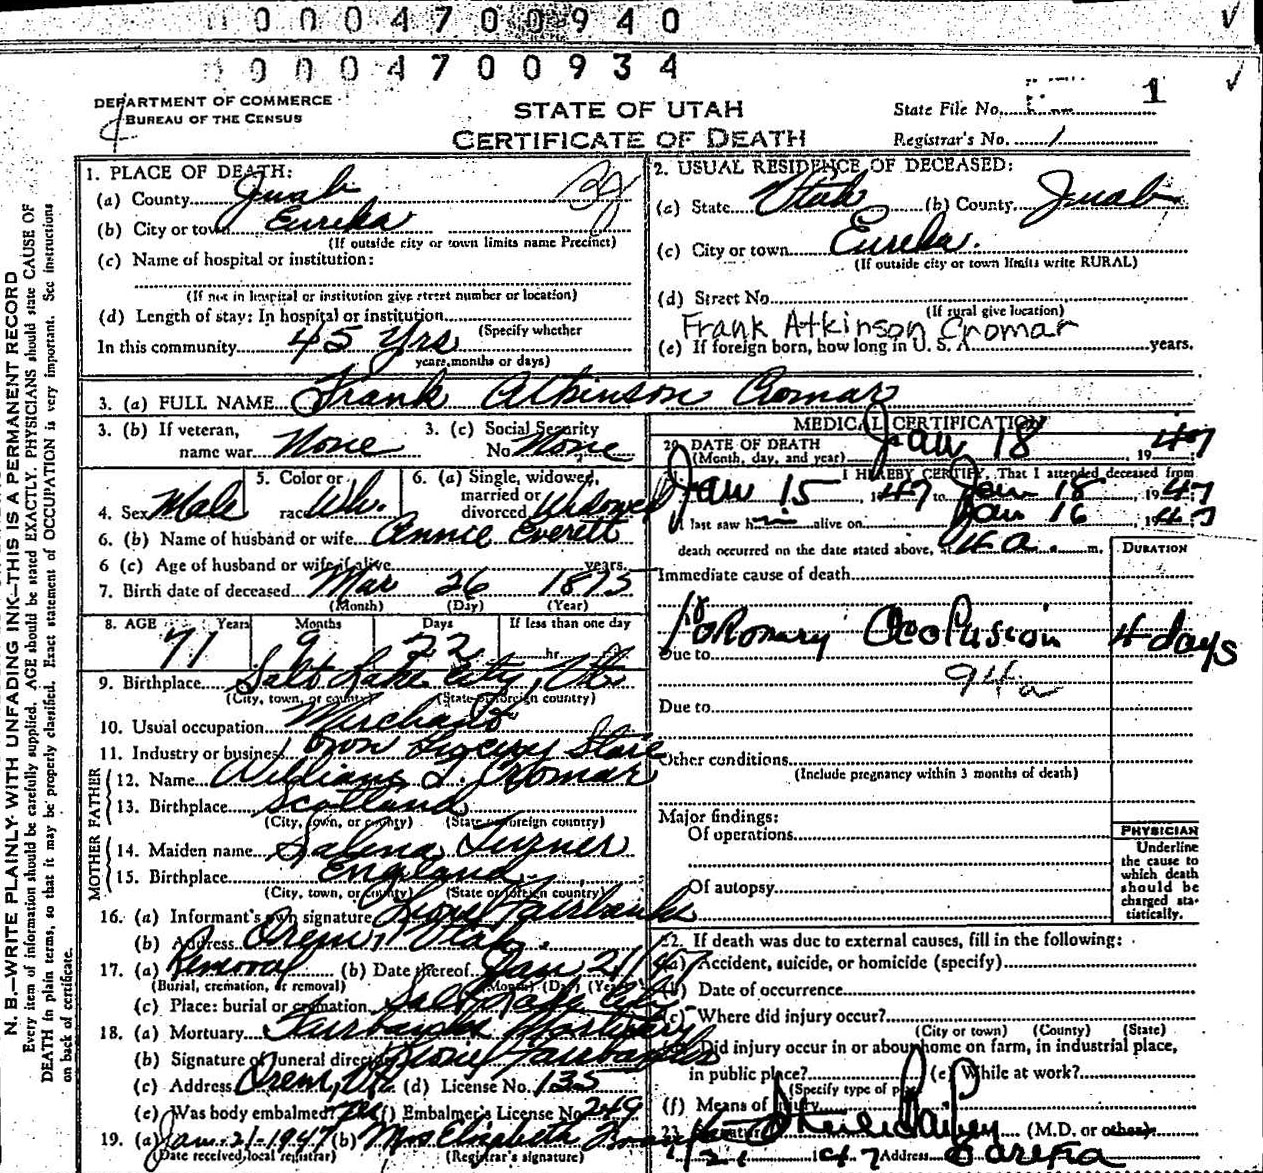 0004700940
0004700934
DEPARTMENT OF COMMERCE
BUREAU OF THE CENSUS
STATE OF UTAH
CERTIFICATE OF DEATH
State File No. 1
Registrar's No. 1
N. B.—WRITE PLAINLY WITH UNFADING INK—THIS IS A PERMANENT RECORD
Every item of information should be carefully supplied. AGE should be stated EXACTLY. PHYSICIANS should state CAUSE OF
DEATH in plain terms, so that it may be properly classified. Exact statement of OCCUPATION is very important. See instructions
on back of certificate.
1. PLACE OF DEATH:
(a) County Juab
(b) City or town Eureka
(If outside city or town limits name Precinct)
(c) Name of hospital or institution:
(If not in hospital or institution give street number or location)
(d) Length of stay: In hospital or institution
(Specify whether
In this community 45 Yrs
years, months or days)
2. USUAL RESIDENCE OF DECEASED:
(a) State Utah (b) County Juab
(c) City or town Eureka.
(If outside city or town limits write RURAL)
(d) Street No.
(If rural give location)
Frank Atkinson Cromar
(e) If foreign born, how long in U. S. A. years.
3. (a) FULL NAME Frank Atkinson Cromar
3. (b) If veteran, name war None
3. (c) Social Security No. None
4. Sex Male
5. Color or race Wh.
6. (a) Single, widowed, married or divorced Widowed
6. (b) Name of husband or wife Annie Everett
6 (c) Age of husband or wife if alive years.
7. Birth date of deceased Mar 26 1875
(Month) (Day) (Year)
8. AGE Years Months Days If less than one day
71 9 22 hr.
9. Birthplace Salt Lake City, Ut
(City, town, or county) (State or foreign country)
10. Usual occupation Merchant
11. Industry or business Own Grocery Store
FATHER
12. Name William L. Cromar
13. Birthplace Scotland
(City, town, or county) (State or foreign country)
MOTHER
14. Maiden name Salena Turner
15. Birthplace England
(City, town, or county) (State or foreign country)
16. (a) Informant's own signature Fairbanks
(b) Address Orem, Utah.
17. (a) Removal (b) Date thereof Jan 21/47
(Burial, cremation, or removal) (Month) (Day) (Year)
(c) Place: burial or cremation Salt Lake City
18. (a) Mortuary Fairbanks Mortuary
(b) Signature of funeral director Fairbanks
(c) Address Orem, Ut. (d) License No. 135
(e) Was body embalmed? Yes (f) Embalmer's License No. 249
19. (a) Jan-21-1947 (b) Mrs Elizabeth
(Date received local registrar) (Registrar's signature)
MEDICAL CERTIFICATION
20. DATE OF DEATH Jan 18, 1947
(Month, day, and year)
I HEREBY CERTIFY, That I attended deceased from
Jan 15, 1947 to Jan 18, 1947
I last saw him alive on Jan 16, 1947
death occurred on the date stated above, at 4 a. m.
DURATION
Immediate cause of death
Coronary Occlusion 4 days
Due to
94a
Due to
Other conditions
(Include pregnancy within 3 months of death)
Major findings:
Of operations
Of autopsy
PHYSICIAN
Underline
the cause to
which death
should be
charged sta-
tistically.
22. If death was due to external causes, fill in the following:
(a) Accident, suicide, or homicide (specify)
(b) Date of occurrence
(c) Where did injury occur?
(City or town) (County) (State)
Did injury occur in or about home on farm, in industrial place,
in public place? (e) While at work?
(Specify type of place)
(f) Means of injury
23. Signature Steele Bailey (M.D. or other)
1/21 1947 Address Eureka